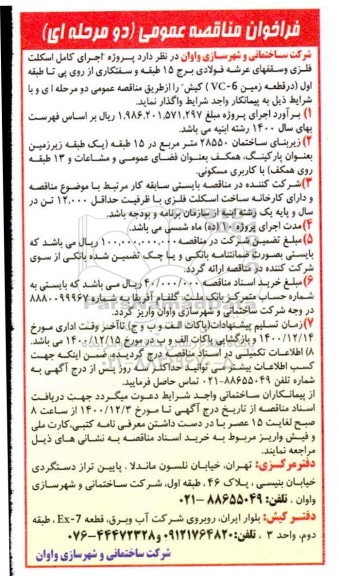 فراخوان مناقصه عمومی (دو مرحله ای)
شرکت ساختمانی و شهرسازی واوان در نظر دارد پروژه "اجرای کامل اسکلت
فلزی وسقفهای عرشه فولادی برج ۱۵ طبقه و سفتکاری از روی پی تا طبقه
اول (درقطعه زمین VC-6 ) کیش" را ازطریق مناقصه عمومی دو مرحله ا ی و با
شرایط ذیل به پیمانکار واجد شرایط واگذار نماید.
۱) بر آورد اجرای پروژه مبلغ ۱,۹۸۶,۲۰۱,۵۷۱,۲۹۷ ریال بر اساس فهرست
بهای سال ۱۴۰۰ رشته ابنیه می باشد.
۲) زیربنای ساختمان ۲۸۵۵۰ متر مربع در ۱۵ طبقه (یک طبقه زیرزمین
بعنوان پارکینگ، همکف بعنوان فضای عمومی و مشاعات و ۱۳ طبقه
روی همکف) با کاربری مسکونی.
۳) شرکت کننده در مناقصه بایستی سابقه کار مرتبط با موضوع مناقصه
و دارای کارخانه ساخت اسکلت فلزی با ظرفیت حداقل ۱۲,۰۰۰ تن در
سال و پایه یک رشته ابنیه از سازمان برنامه و بودجه باشد.
۴) مدت اجرای پروژه ۱۰ (ده) ماه شمسی می باشد.
۵) مبلغ تضمین شرکت در مناقصه ۱۰۰,۰۰۰,۰۰۰,۰۰۰ ریال می باشد که
بایستی بصورت ضمانتنامه بانکی و یا چک تضمین شده بانکی از سوی
شرکت کننده در مناقصه ارائه گردد.
۶) مبلغ خرید اسناد مناقصه ۴۰/۰۰۰/۰۰۰ ریال می باشد که بایستی به
شماره حساب متمرکز بانک ملت گلفام آفریقا به شماره ۸۸۸۰۰۹۹۹۶۷
در وجه شرکت ساختمانی و شهرسازی واوان واریز گردد.
۷) زمان تسلیم پیشنهادات(پاکات الف و ب و ج) تاآخر وقت اداری مورخ
۱۴۰۰/۱۲/۱۴ و بازگشایی پاکات الف و ب در مورخ ۱۴۰۰/۱۲/۱۵ می باشد.
۸) اطلاعات تکمیلی در اسناد مناقصه درج گردیده، ضمن اینکه جهت
کسب اطلاعات بیشترمی توانید حداکثر تا ۸ روز پس از درج آگهی به
شماره تلفن ۸۸۶۵۵۰۴۹-۰۲۱ تماس حاصل فرمایید.
از پیمانکاران ساختمانی واجد شرایط دعوت میگردد جهت دریافت
اسناد مناقصه از تاریخ درج آگهی تا مورخ ۱۴۰۰/۱۲/۳ از ساعت ۸
صبح لغایت ۱۵ عصر با در دست داشتن معرفی نامه کتبی، کارت ملی
و فیش واریز مربوط به خرید اسناد مناقصه به نشانی های ذیل
مراجعه نمایند.
دفترمرکزی: تهران، خیابان نلسون ماندلا ، پایین تراز دستگردی
خیابان بنیسی ، پلاک ۴۶ ، طبقه اول، شرکت ساختمانی و شهرسازی
واوان ، تلفن: ۸۸۶۵۵۰۴۹ –۰۲۱
دفتر کیش: بلوار ایران، روبروی شرکت آب وبرق، قطعه Ex-7 ، طبقه
دوم، واحد ۳ ، تلفن: ۰۹۱۲۱۷۶۴۸۲۰و ۴۴۴۷۲۳۲۸-۰۷۶
شرکت ساختمانی و شهرسازی واوان